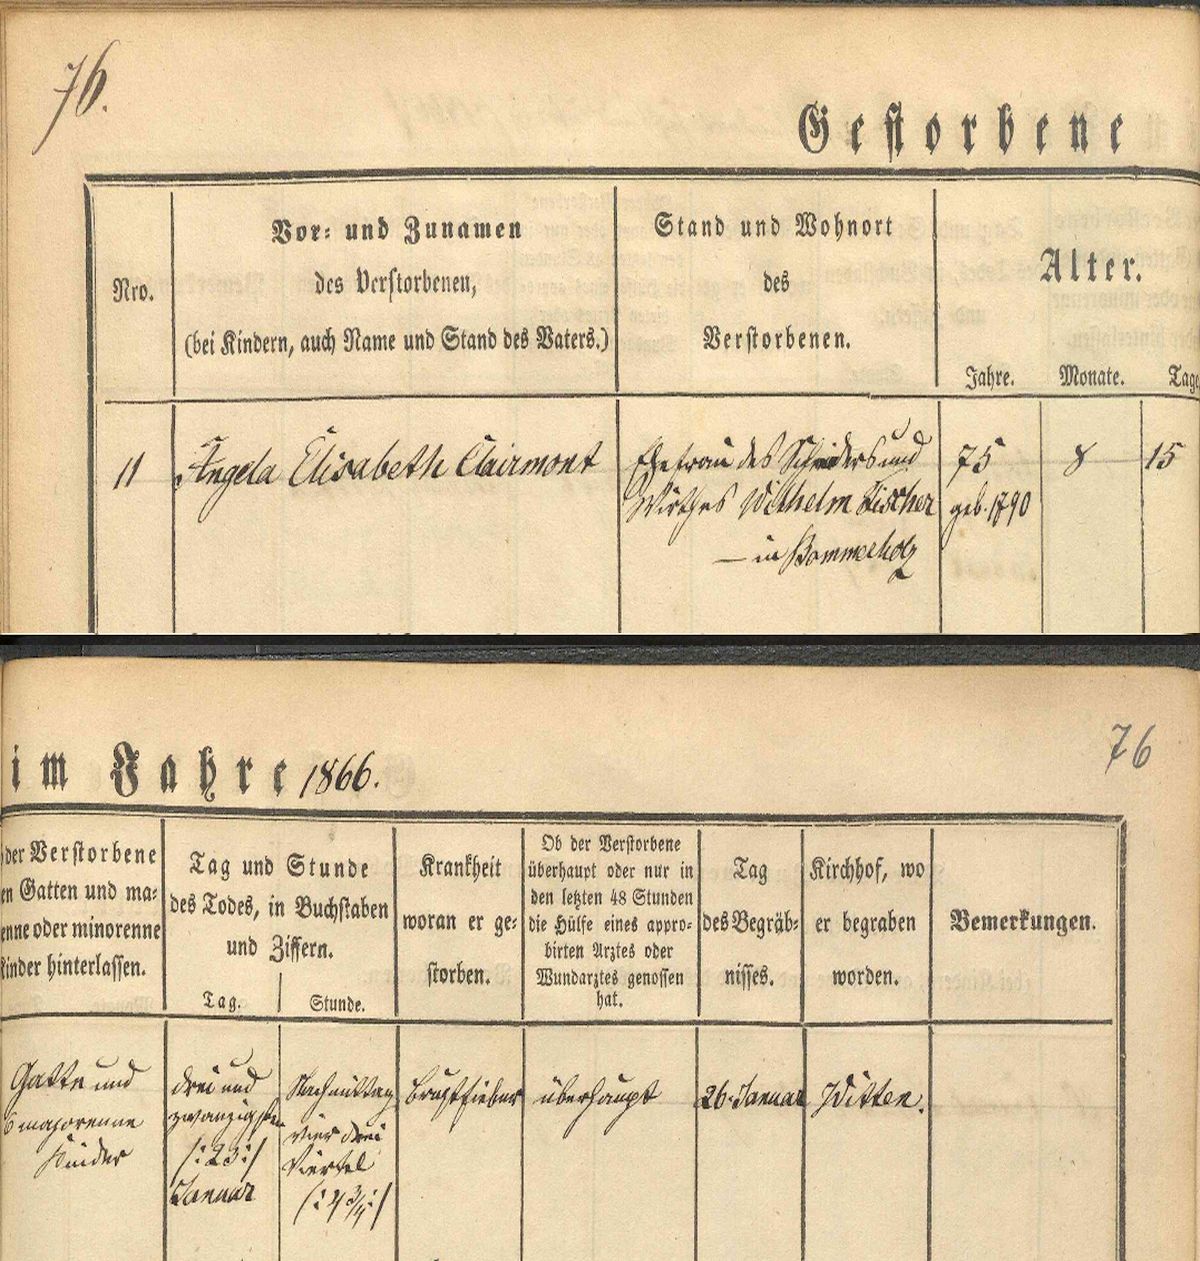 76.
Gestorbene
Nro.
Vor- und Zunamen
des Verstorbenen,
(bei Kindern, auch Name und Stand des Vaters.)
Stand und Wohnort
des
Verstorbenen.
Alter.
Jahre.
Monate.
Tage
11
Angela Elisabeth Clairmont
Ehefrau des Schneiders und
Wirthes Wilhelm Fischer
— in Bommerholz
75
geb. 1790
8
15
im Jahre 1866.
76
der Verstorbene
en Gatten und ma-
enne oder minorenne
Kinder hinterlassen.
Tag und Stunde
des Todes, in Buchstaben
und Ziffern.
Tag.
Stunde.
Krankheit
woran er ge-
storben.
Ob der Verstorbene
überhaupt oder nur in
den letzten 48 Stunden
die Hülfe eines appro-
birten Arztes oder
Wundarztes genossen
hat.
Tag
des Begräb-
nisses.
Kirchhof, wo
er begraben
worden.
Bemerkungen.
Gatte und
6 majorenne
Kinder
drei und
zwanzigsten
/:23:/
Januar
Nachmittag
vier drei
Viertel
/:4 3/4:/
Brustfieber
überhaupt
26. Januar
Witten.